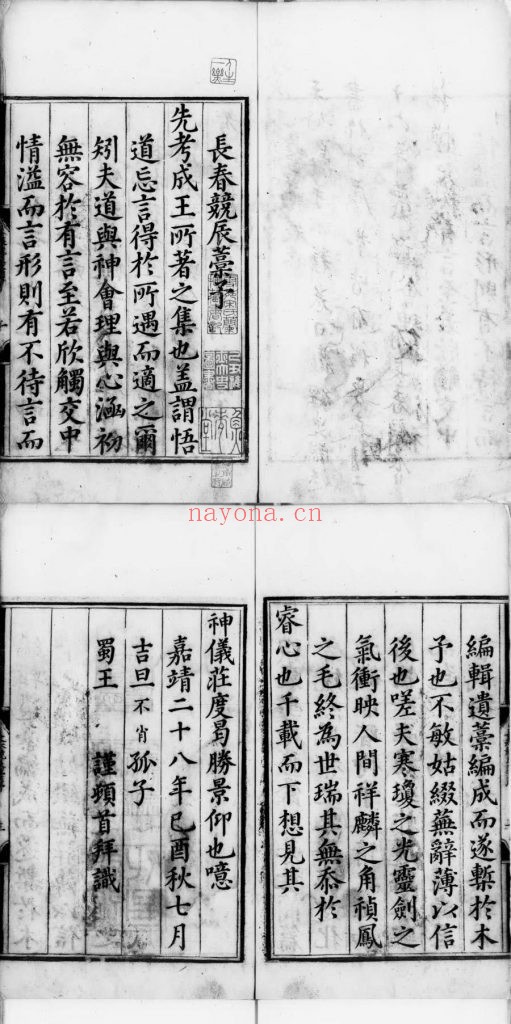 長春競辰藁序
先考成王所著之集也盖謂悟
道忘言得於所遇而適之爾
矧夫道與神會理與心涵初
無容於有言至若欣觸交中
情溢而言形則有不待言而
nayona.cn
編輯遺藁編成而遂槧於木
予也不敏姑綴蕪辭薄以信
後也嗟夫寒瓊之光靈劍之
氣衝映人間祥麟之角禎鳳
之毛終為世瑞其無忝於
睿心也千載而下想見其
神儀莊度曷勝景仰也噫
嘉靖二十八年己酉秋七月
吉旦不肖孤子
蜀王 謹頓首拜識